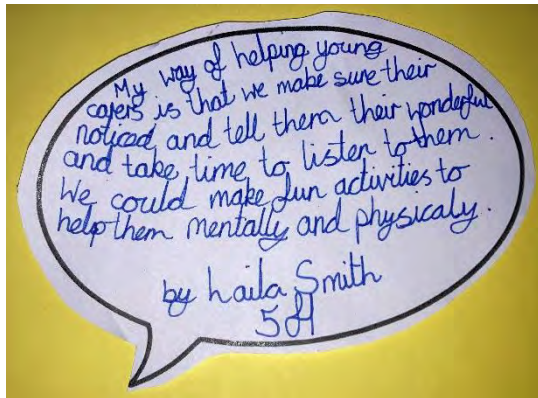 My way of helping young
carers is that we make sure their
noticed and tell them their wonderful
and take time to listen to them.
We could make fun activities to
help them mentally and physicaly.
by Laila Smith
5H